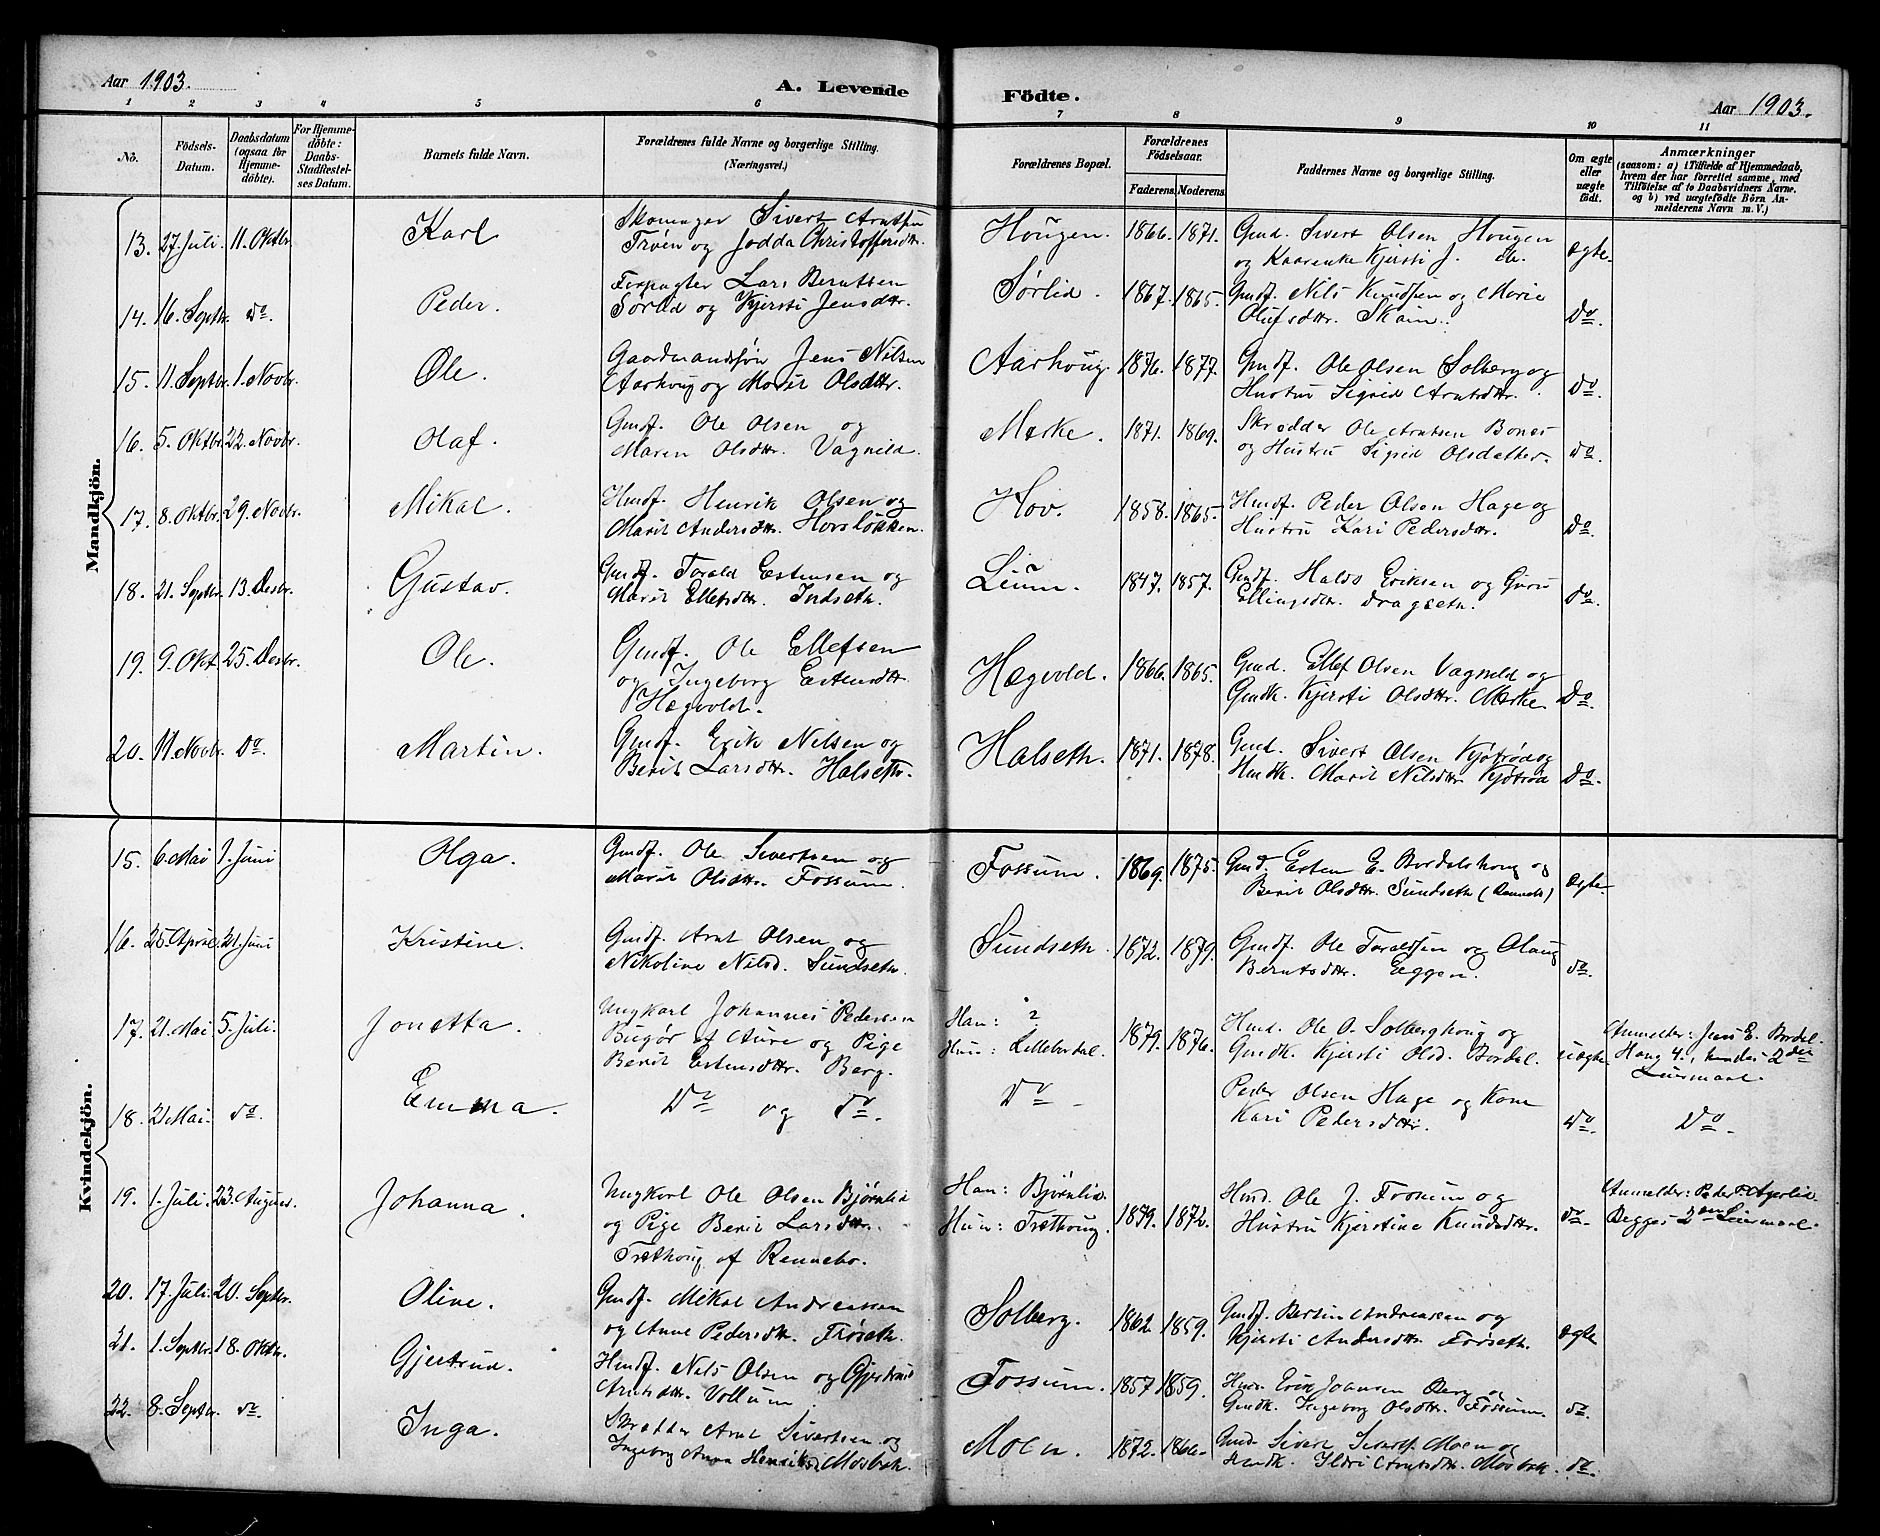 Aar 1903.
A. Levende Födte.
Aar 1903.
1 2 3 4 5 6 7 8 9 10 11
No.
Födsels-Datum.
Daabsdatum (ogsaa for Hjemme-döbte).
For Hjemme-döbte: Daabs-Stadfæstel-ses Datum.
Barnets fulde Navn.
Forældrenes fulde Navne og borgerlige Stilling. (Næringsvei.)
Forældrenes Bopæl.
Forældrenes Födselsaar.
Faderens. Moderens.
Faddernes Navne og borgerlige Stilling.
Om ægte eller uægte födt.
Anmærkninger
(saasom: a) i Tilfælde af Hjemmedaab,
hvem der har forrettet samme, med
Tilföielse af to Daabsvidners Navne.
og b) ved uægtefödte Börn An-
melderens Navn m. V.)
Mandkjön.
13. 27. Juli. 11. Oktbr. Karl Skomager Sivert Arntsen
Trøen og Jodda Christoffersdtr. Hougen. 1866. 1871. Gmd. Sivert Olsen Hougen
og Kaarenke Kjersti J. do. ægte.
14. 16. Septbr. do. Peder. Forpagter Lars Berntsen
Sørlid og Kjersti Jensdtr. Sørlid. 1867. 1865. Gmdf. Nils Knudsen og Marie
Olufsdtr. Skam. Do.
15. 11. Septbr. 1. Novbr. Ole. Gaardmandssøn Jens Nilsen
Aarhoug og Marit Olsdtr. Aarhoug. 1876. 1877. Gmdf. Ole Olsen Solberg og
Hustru Sigrid Arntsdtr. Do.
16. 5. Oktbr. 22. Novbr. Olaf. Gmdf. Ole Olsen og
Maren Olsdtr. Vagnild. Merke. 1871. 1869. Skrædder Ole Arntsen Bones
og Hustru Sigrid Olsdatter. do.
17. 8. Oktbr. 29. Novbr. Mikal. Hmdf. Henrik Olsen og
Marit Andersdtr. Hovsløkken. Hov. 1858. 1865. Hmdf. Peder Olsen Hage og
Hustru Kari Pedersdtr. Do.
18. 21. Septbr. 13. Desbr. Gustav. Gmdf. Torald Estensen og
Marit Ellefsdtr. Indseth. Lium. 1847. 1857. Gmdf. Haldo Eriksen og Guru
Ellingsdtr. Dragseth. Do.
19. 9. Okt. 25. Desbr. Ole. Gmdf. Ole Ellefsen
og Ingeborg Estensdtr.
Hægvold. Hægvold. 1866. 1865. Gmd. Ellef Olsen Vagnild og
Gmdk. Kjersti Olsdtr. Merke Do.
20. 11. Novbr. Do. Martin. Gmdf. Erik Nilsen og
Berit Larsdtr. Halseth. Halseth. 1871. 1878. Gmd. Sivert Olsen Kjøtrød og
Hmdk. Marit Nilsdtr. Kjøtrød Do.
Kvindekjön.
15. 6. Mai 1. Juni Olga. Gmdf. Ole Sivertsen og
Marit Olsdtr. Fossum. Fossum. 1869. 1875. Gmd. Esten E. Bordalshoug og
Berit Olsdtr. Sundseth (Rennebo) Ægte
16. 25. April. 21. Juni Kristine. Gmdf. Arnt Olsen og
Nikoline Nilsd. Sundseth. Sundseth. 1872. 1879. Gmdf. Ole Toraldsen og Olaug
Berntsdtr. Eggen. do.
17. 21. Mai 5. Juli. Jonetta. Ungkarl Johannes Pedersen
Bugør af Aure og Pige
Berit Estensdtr. Berg. Han: ?
Hun: Lillebudal. 1879. 1876. Hmd. Ole O. Solberghoug og
Gmdk. Kjersti Olsd. Bordal. uægte Anmelder: Jens E. Bordal.
Hans 4., hendes 2den
Leiermaal.
18. 21 Mai. do. Emma. Do og do. Do - Peder Olsen Hage og Kone
Kari Pedersdtr. Do. Do -
19. 1. Juli. 23. August. Johanna. Ungkarl Ole Olsen Bjørnlid
og Pige Berit Larsdtr.
Træthoug af Rennebo. Han: Bjørnlid.
Hun: Træthoug. 1859. 1872. Hmd. Ole J. Fossum og
Hustru Kjerstine Knudsdtr. do. Anmelder: Peder Agerlie.
Begges 2den Leiermaal.
20. 17. Juli. 20. Septbr. Oline. Gmdf. Mikal Andreassen
og Anne Pedersdtr. Frøseth. Solberg. 1862. 1859. Gmdf. Bertin Andreassen og
Kjersti Andersdtr. Frøseth. ægte
21. 1. Septbr. 18. Oktbr. Gjertrud. Hmdf. Nils Olsen og Gjertrud
Arntsdtr. Vollum. Fossum. 1857. 1859. Hmd. Erik Johnsen Berg og
Gmdk. Ingeborg Olsdtr. Fossum. do.
22. 8. Septbr. do. Inga. Skrædder Arnt Sivertsen og
Ingeborg Anna Henriksd. Mosbak. Moen. 1872. 1866. Gmd. Sivert Sivertsen Moen og
Hmdk. Ildri Arntsdtr. Mosbak. do.